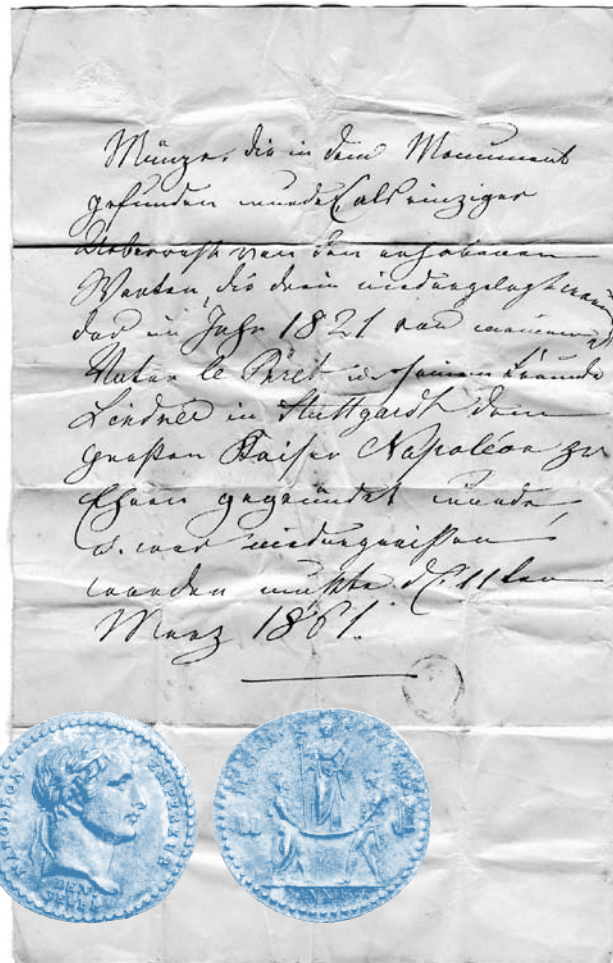 Münze, die in dem Monument
gefunden wurde (als einziger
Ueberrest von den erhabenen
Worten, die drein niedergelegt waren
das im Jahr 1821 von meinem
Vater le Pret u. seinem Freunde
Lindner in Stuttgardt dem
großen Kaiser Napoléon zu
Ehren gegründet wurde,
u. was niedergerissen
werden mußte d. 11ten
Merz 1861.
NAPOLEON EMPEREUR
DENON